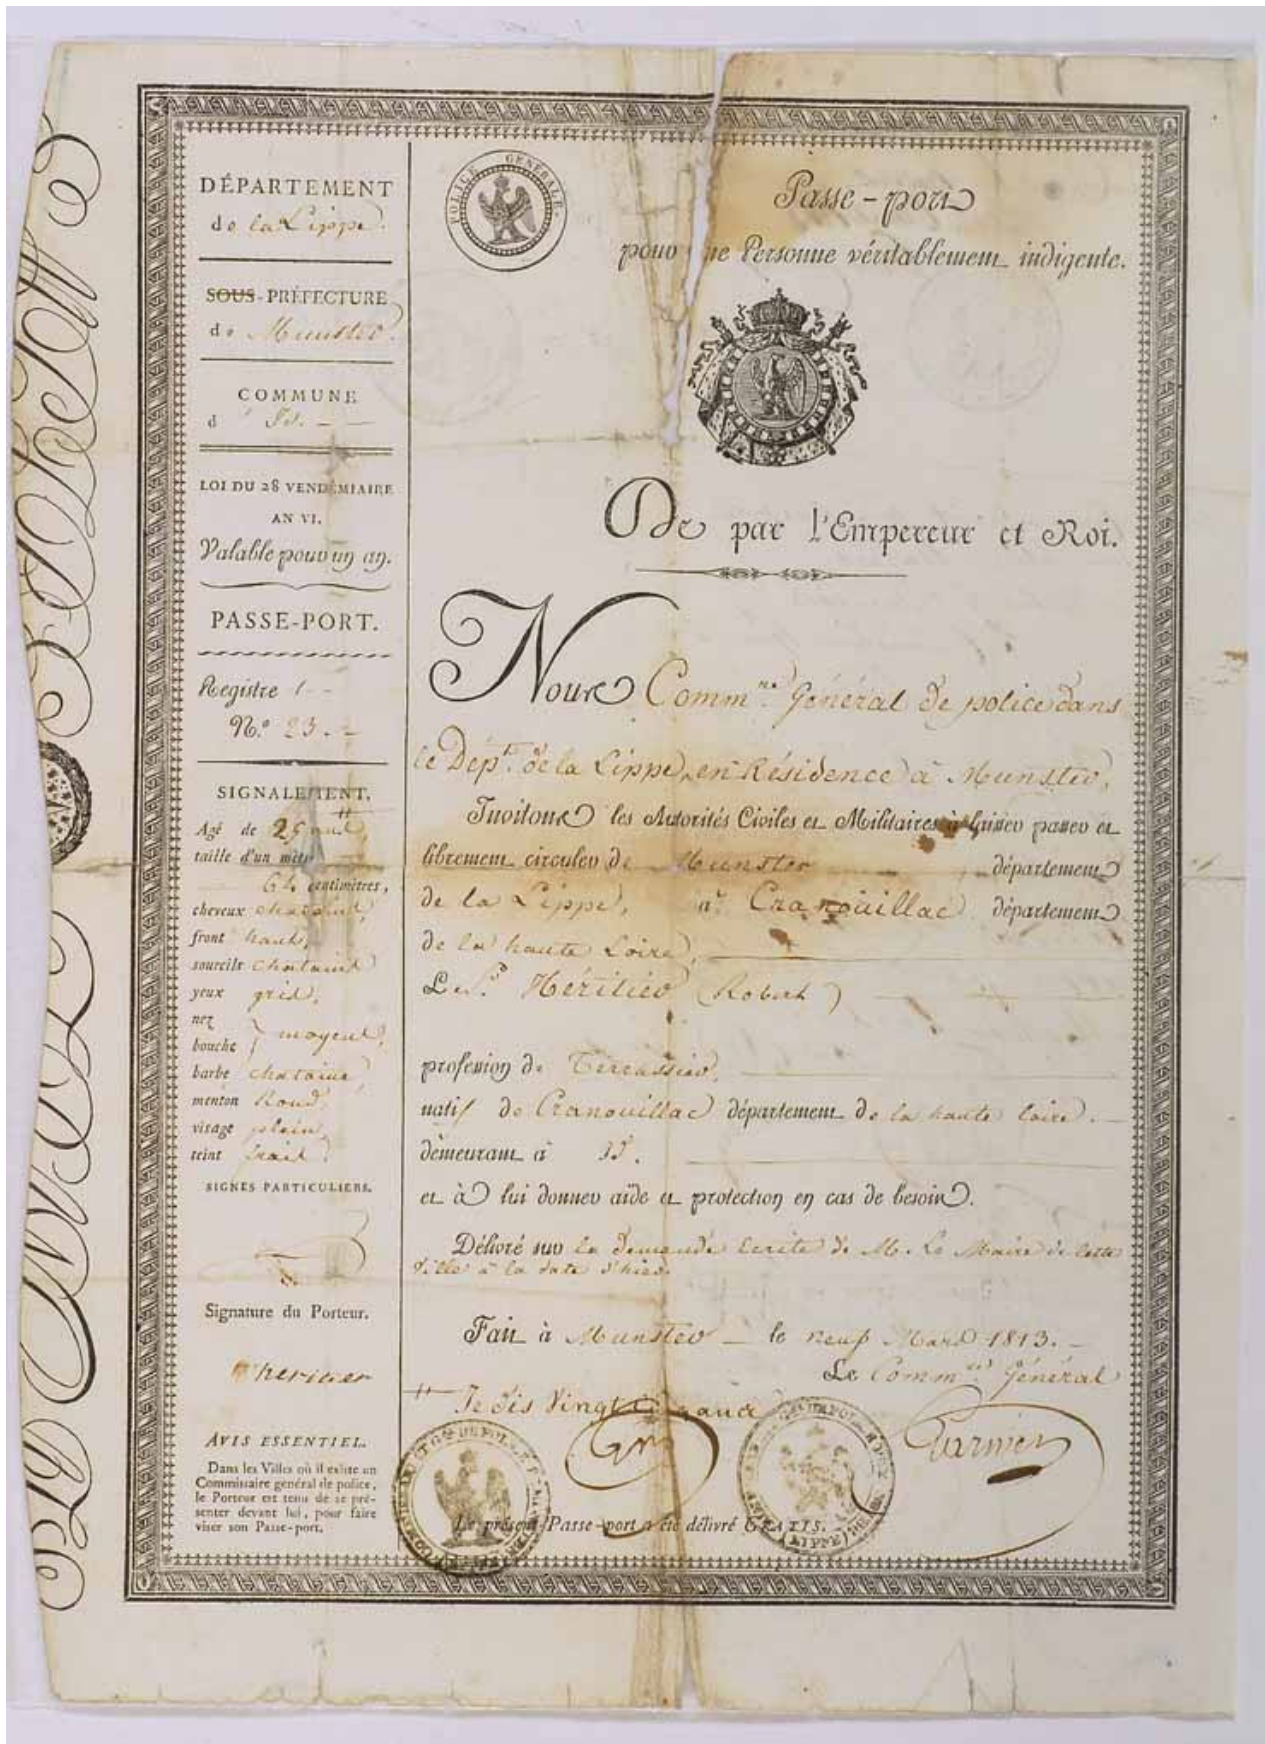 DÉPARTEMENT
de la Lippe.
SOUS-PRÉFECTURE
de Munster.
COMMUNE
d Id.
LOI DU 28 VENDÉMIAIRE
AN VI.
Valable pour un an.
PASSE-PORT.
Registre 1
N.º 23.
SIGNALEMENT.
Agé de 25 ans
taille d'un mètre
64 centimètres,
cheveux chatains
front haut,
sourcils chatains
yeux gris,
nez
bouche } moyens,
barbe chataine
menton Rond,
visage plein
teint frais.
SIGNES PARTICULIERS.
Signature du Porteur.
lheritier
AVIS ESSENTIEL.
Dans les Villes où il existe un
Commissaire général de police,
le Porteur est tenu de se pré-
senter devant lui, pour faire
viser son Passe-port.
POLICE GÉNÉRALE.
Passe-port
pour une Personne véritablement indigente.
De par l'Empereur et Roi.
Nous Comm.re Général de police dans
le Dép.t de la Lippe, en Résidence à Munster,
Invitons les Autorités Civiles et Militaires à laisser passer et
librement circuler de Munster département
de la Lippe, à Cranouillac département
de la haute Loire,
Le S.r Héritier (Robert)
profession de Terrassier,
natif de Cranouillac département de la haute Loire.
demeurant à Id.
et à lui donner aide et protection en cas de besoin.
Délivré sur la demande Ecrite de M. Le Maire de cette
Ville à la date d'hier.
Fait à Munster le neuf Mars 1813.
Le Comm.re Général
Je dis Vingt Cinq ans
Garnier
Le présent Passe-port a été délivré GRATIS.